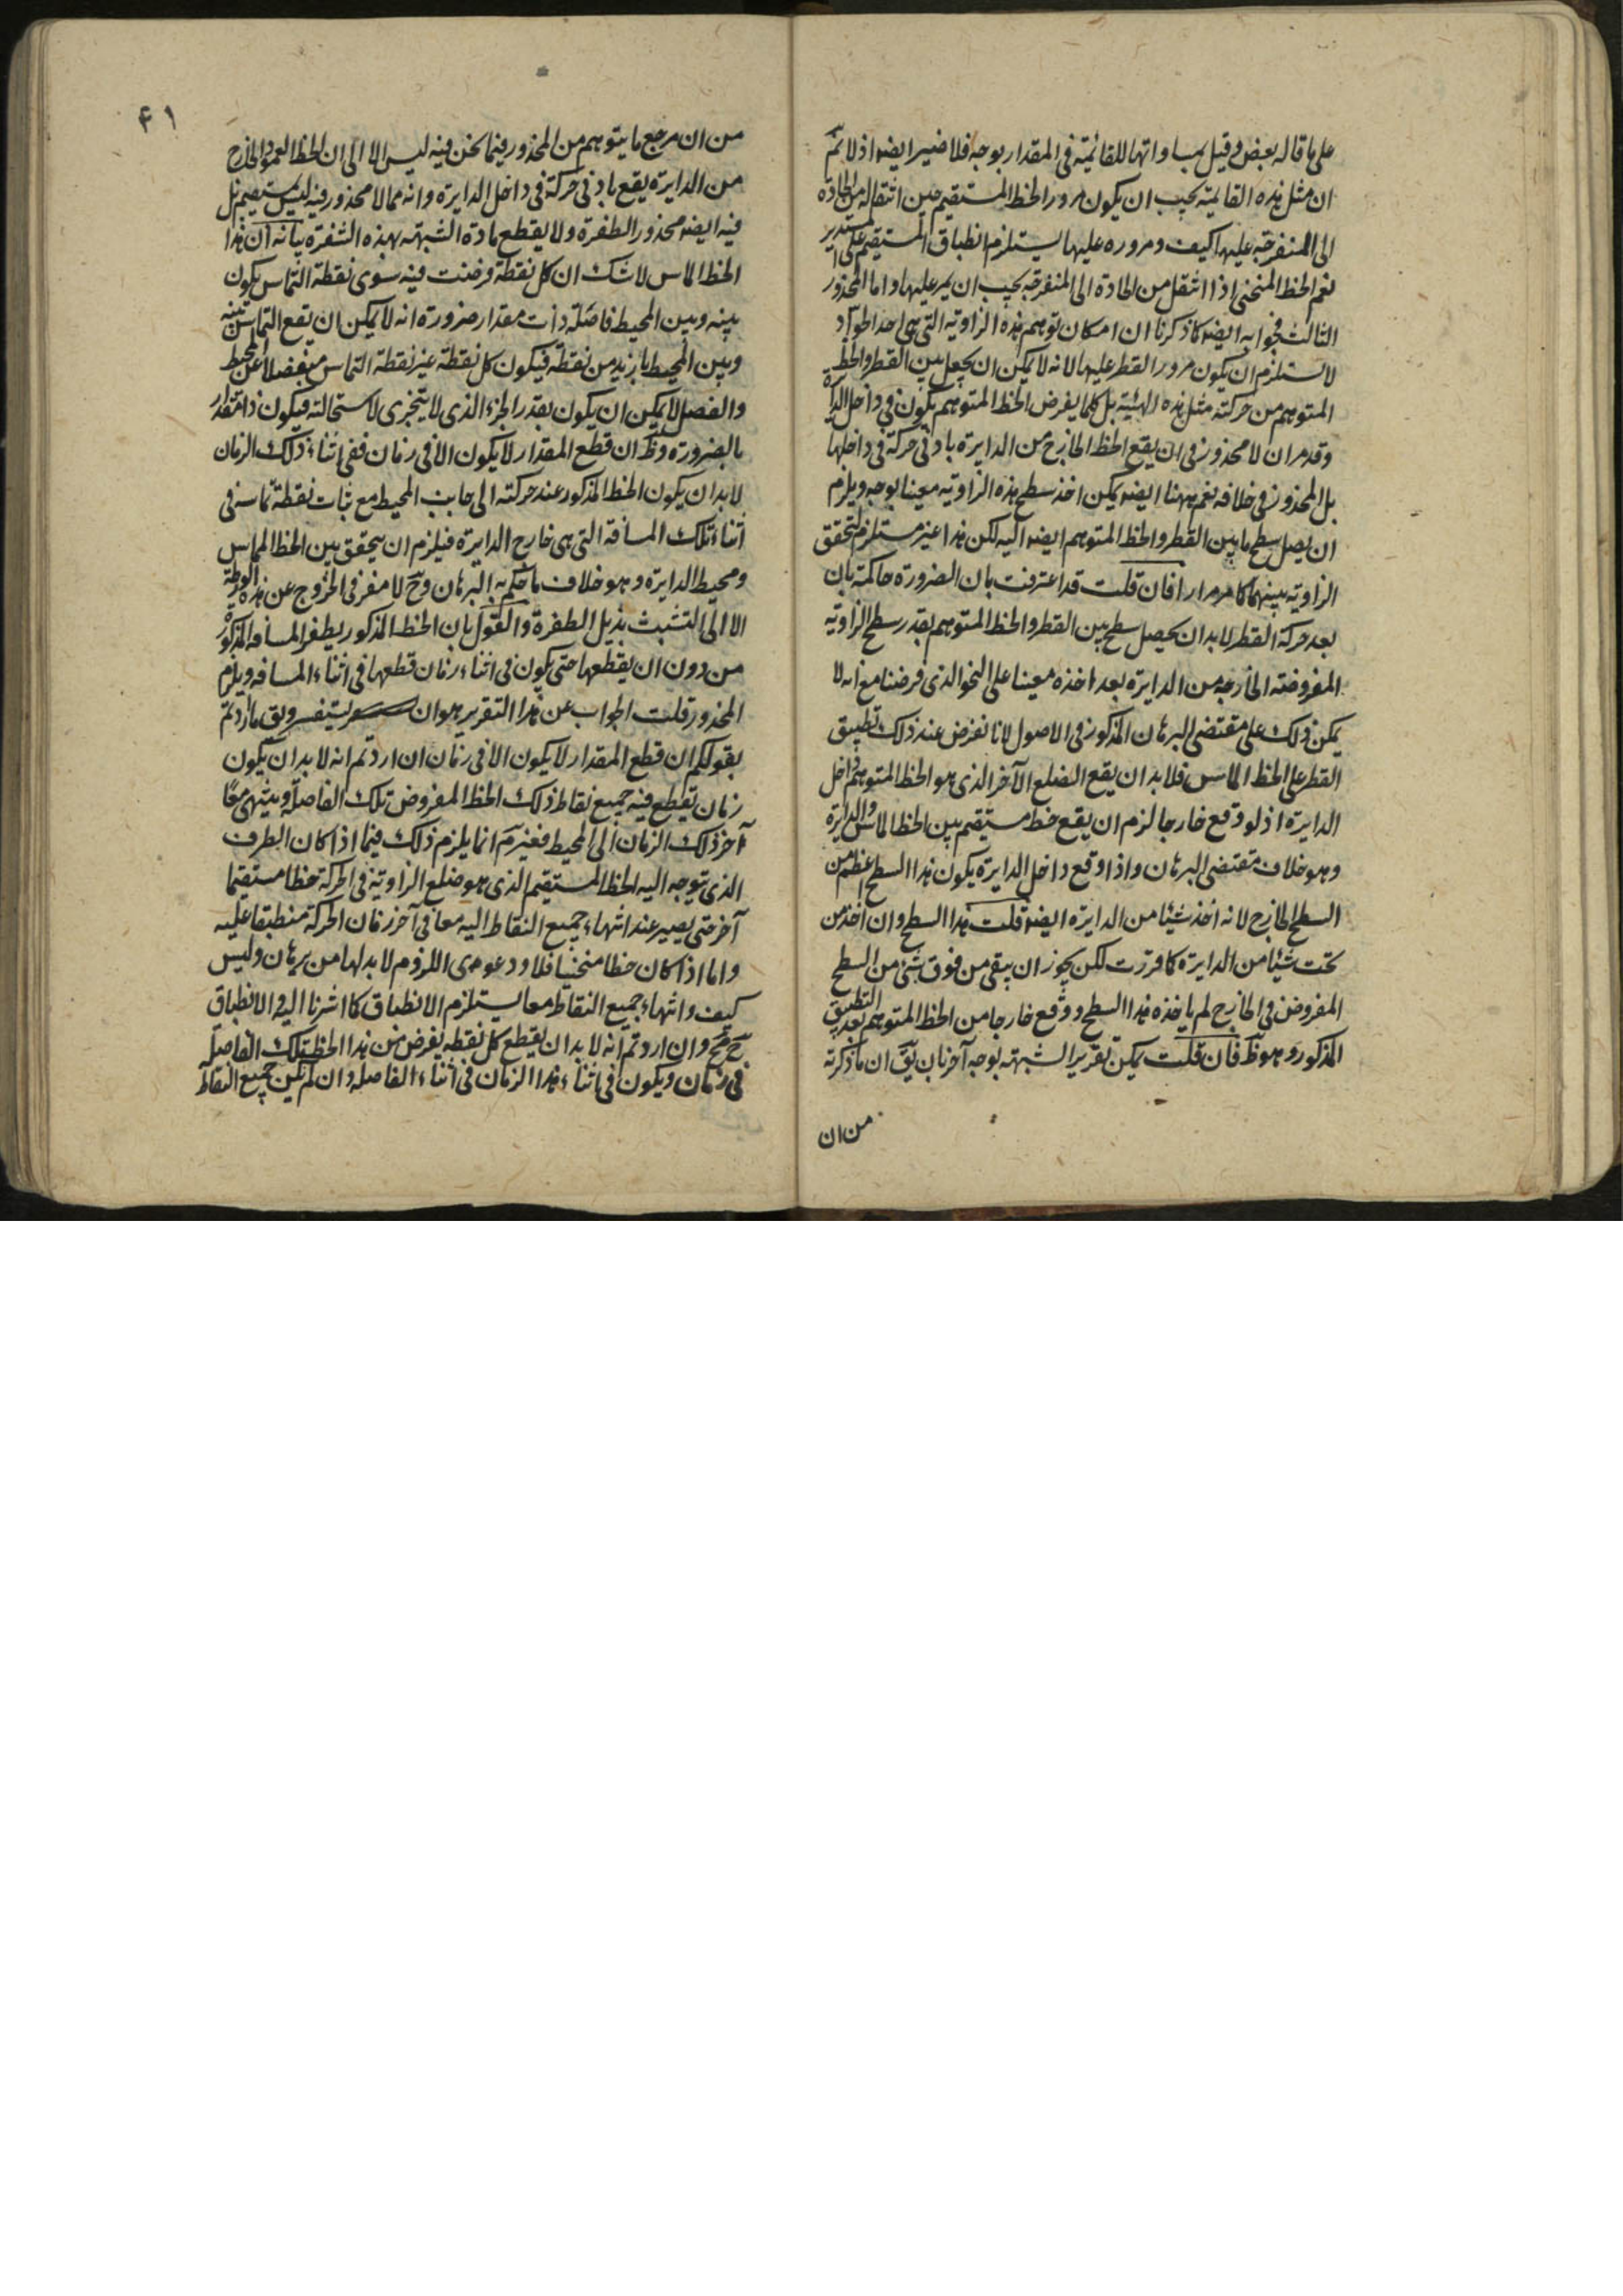 على ما قاله بعض وقيل بمساواتها للقائمة فى المقدار بوجه فلا ضير ايضه اذ لا نم
ان مثل هذه القائمة يجب ان يكون مرور الخط المستقيم حين انتقاله من الحادة
الى المنفرجة عليها كيف ومروره عليها يستلزم انطباق المستقيم على المستدير
نعم الخط المنحنى اذا انتقل من الحادة الى المنفرجة يجب ان يمر عليها واما المحذور
الثالث فجوابه ايضه كما ذكرنا ان امكان توهم هذه الزاوية التى هى احد الحواد
لا يستلزم ان يكون مرور القطر عليها لانه لا يمكن ان يجعل بين القطر والخط
المتوهم من حركته مثل هذه الهيئة بل كلما يفرض الخط المتوهم يكون فى داخل الدايرة
وقد مر ان لا محذور فى ان يقع الخط الخارج من الدايرة بادنى حركة فى داخلها
بل المحذور فى خلافه نعم ههنا ايضه يمكن اخذ سطح هذه الزاوية معينا بوجه ويلزم
ان يصل سطح ما بين القطر والخط المتوهم ايضه اليه لكن هذا غير مستلزم لتحقق
الزاوية بينهما كما مر مرارا فان قلت قد اعترفت بان الضرورة حاكمة بان
بعد حركة القطر لا بد ان يحصل سطح بين القطر والخط المتوهم بقدر سطح الزاوية
المفروضة الخارجة من الدايرة بعد اخذه معينا على النحو الذى فرضنا مع انه لا
يمكن ذلك على مقتضى البرهان المذكور فى الاصول لانا نفرض عند ذلك تطبيق
القطر على الخط المماس فلا بد ان يقع الضلع الآخر الذى هو الخط المتوهم داخل
الدايرة اذ لو وقع خارجا لزم ان يقع خط مستقيم بين الخط المماس والدايرة
وهو خلاف مقتضى البرهان واذا وقع داخل الدايرة يكون هذا السطح اعظم من
السطح الخارج لانه اخذ شيئا من الدايرة ايضه قلت هذا السطح وان اخذ من
تحت شيئا من الدايرة كما قررت لكن يجوز ان يبقى من فوق شئ من السطح
المفروض فى الخارج لم ياخذه هذا السطح ووقع خارجا من الخط المتوهم بعد التطبيق
المذكور وهو ظ فان قلت يمكن تقرير الشبهة بوجه آخر بان يق ان ما ذكرته
من ان
۴۱
من ان مرجع ما يتوهم من المحذور فيما نحن فيه ليس الا الى ان الخط العمود الخارج
من الدايرة يقع بادنى حركة فى داخل الدايرة وانه مما لا محذور فيه ليس بمستقيم بل
فيه ايضه محذور الطفرة ولا يقطع مادة الشبهة بهذه الشفرة بيانه ان هذا
الخط المماس لا شك ان كل نقطة فرضت فيه سوى نقطة التماس يكون
بينه وبين المحيط فاصلة ذات مقدار ضرورة انه لا يمكن ان يقع التماس بينه
وبين المحيط بازيد من نقطة فيكون كل نقطة غير نقطة التماس منفصلا عن المحيط
والفصل لا يمكن ان يكون بقدر الجزء الذى لا يتجزى لاستحالته فيكون ذا مقدار
بالضرورة وظ ان قطع المقدار لا يكون الا فى زمان ففى اثناء ذلك الزمان
لا بد ان يكون الخط المذكور عند حركته الى جانب المحيط مع ثبات نقطة تماسه فى
اثناء تلك المسافة التى هى خارج الدايرة فيلزم ان يتحقق بين الخط المماس
ومحيط الدايرة وهو خلاف ما حكم به البرهان وح لا مفر فى الخروج عن هذه الورطة
الا الى التشبث بذيل الطفرة والقول بان الخط المذكور يطفر المسافه المذكورة
من دون ان يقطعها حتى يكون فى اثناء زمان قطعها فى اثناء المسافه ويلزم
المحذور قلت الجواب عن هذا التقرير هو ان يستفسر ويق ما اردتم
بقولكم ان قطع المقدار لا يكون الا فى زمان ان اردتم انه لا بد ان يكون
زمان تقطع فيه جميع نقاط ذلك الخط المفروض تلك الفاصلة وينتهى معا
آخر ذلك الزمان الى المحيط فغير م انما يلزم ذلك فيما اذا كان الطرف
الذى يتوجه اليه الخط المستقيم الذى هو ضلع الزاوية فى الحركة خطا مستقيما
آخر حتى يصير عند انتهاء جميع النقاط اليه معا فى آخر زمان الحركة منطبقا عليه
واما اذا كان خطا منحنيا فلا ودعوى اللزوم لا بد لها من برهان وليس
كيف وانتهاء جميع النقاط معا يستلزم الانطباق كما اشرنا اليه والانطباق
ح مح وان اردتم انه لا بد ان يقطع كل نقطه يفرض من هذا الخط تلك الفاصلة
فى زمان ويكون فى اثناء هذا الزمان فى اثناء الفاصله وان لم يكن جميع النقاط